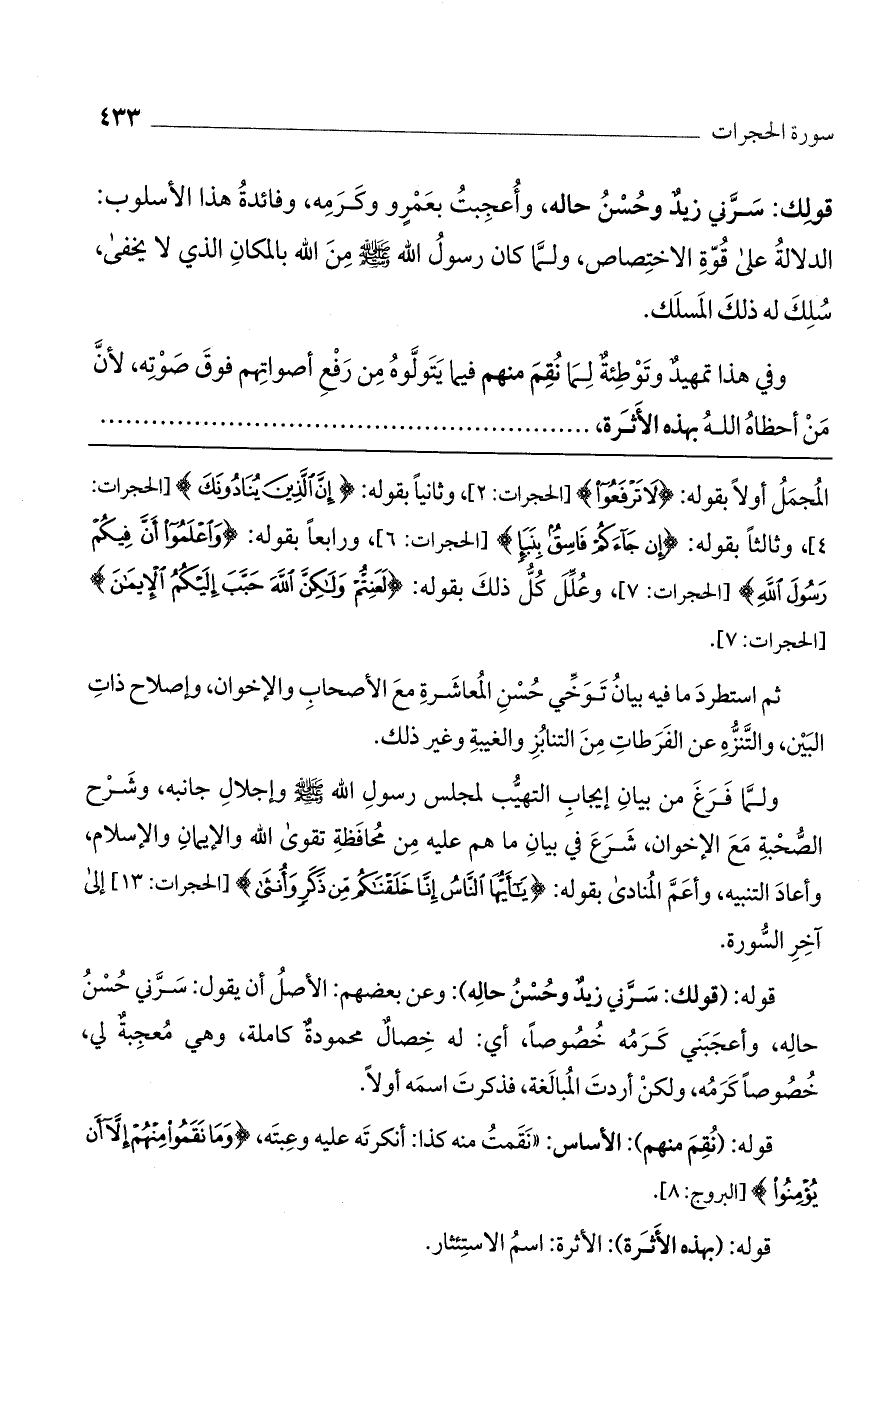 سورة الحجرات ٤٣٣
قولِك: سَـرَّني زيدٌ وحُسْنُ حاله، وأُعجِبتُ بعَمْرٍو وكَـرَمِه، وفائدةُ هذا الأسلوب:
الدلالةُ علىٰ قُوّةِ الاختِصاص، ولـمَّا كان رسولُ الله ﷺ مِنَ الله بالمكانِ الذي لا يخفىٰ،
سُلِكَ له ذلكَ المَسلَك.
وفي هذا تمهيدٌ وتَوْطِئةٌ لِـمَا نُقِمَ منهم فيما يَتَولَّوهُ مِن رَفْعِ أصواتِهم فوقَ صَوْتِه، لأنَّ
مَنْ أحظاهُ اللـهُ بهذه الأَثَـرة، ........................................................
المُجمَلُ أولاً بقوله: ﴿لَا تَرْفَعُوٓا۟﴾ [الحجرات: ٢]، وثانياً بقوله: ﴿إِنَّ ٱلَّذِينَ يُنَادُونَكَ﴾ [الحجرات:
٤]، وثالثاً بقوله: ﴿إِن جَآءَكُمْ فَاسِقٌۢ بِنَبَإٍ﴾ [الحجرات: ٦]، ورابعاً بقوله: ﴿وَٱعْلَمُوٓا۟ أَنَّ فِيكُمْ
رَسُولَ ٱللَّهِ﴾ [الحجرات: ٧]، وعُلِّلَ كُلُّ ذلكَ بقوله: ﴿لَعَنِتُّمْ وَلَـٰكِنَّ ٱللَّهَ حَبَّبَ إِلَيْكُمُ ٱلْإِيمَـٰنَ﴾
[الحجرات: ٧].
ثم استطردَ ما فيه بيانُ تَـوَخِّي حُسْنِ المُعاشَـرةِ معَ الأصحابِ والإخوان، وإصلاح ذاتِ
البَيْن، والتَّنزُّهِ عن الفَرَطاتِ مِنَ التنابُزِ والغيبةِ وغير ذلك.
ولـمَّا فَـرَغَ من بيانِ إيجابِ التهيُّب لمجلس رسولِ الله ﷺ وإجلالِ جانبه، وشَـرْح
الصُّحْبةِ مَعَ الإخوان، شَـرَعَ في بيانِ ما هم عليه مِن مُحافَظةِ تقوىٰ الله والإيمانِ والإسلام،
وأعادَ التنبيه، وأعَمَّ المُنادىٰ بقوله: ﴿يَـٰٓأَيُّهَا ٱلنَّاسُ إِنَّا خَلَقْنَـٰكُم مِّن ذَكَرٍ وَأُنثَىٰ﴾ [الحجرات: ١٣] إلىٰ
آخِرِ السُّورة.
قوله: (قولك: سَـرَّني زيدٌ وحُسْنُ حالِه): وعن بعضهم: الأصلُ أن يقول: سَـرَّني حُسْنُ
حالِه، وأعجَبَني كَـرَمُه خُصُوصاً، أي: له خِصالٌ محمودةٌ كاملة، وهي مُعجِبةٌ لي،
خُصُوصاً كَرَمُه، ولكنْ أردتَ المُبالَغة، فذكرتَ اسمَه أولاً.
قوله: (نُقِمَ منهم): الأساس: «نَقَمتُ منه كذا: أنكرتَه عليه وعِبتَه، ﴿وَمَا نَقَمُوا۟ مِنْهُمْ إِلَّآ أَن
يُؤْمِنُوا۟﴾ [البروج: ٨].
قوله: (بهذه الأَثَـرة): الأثرة: اسمُ الاستِئثار.